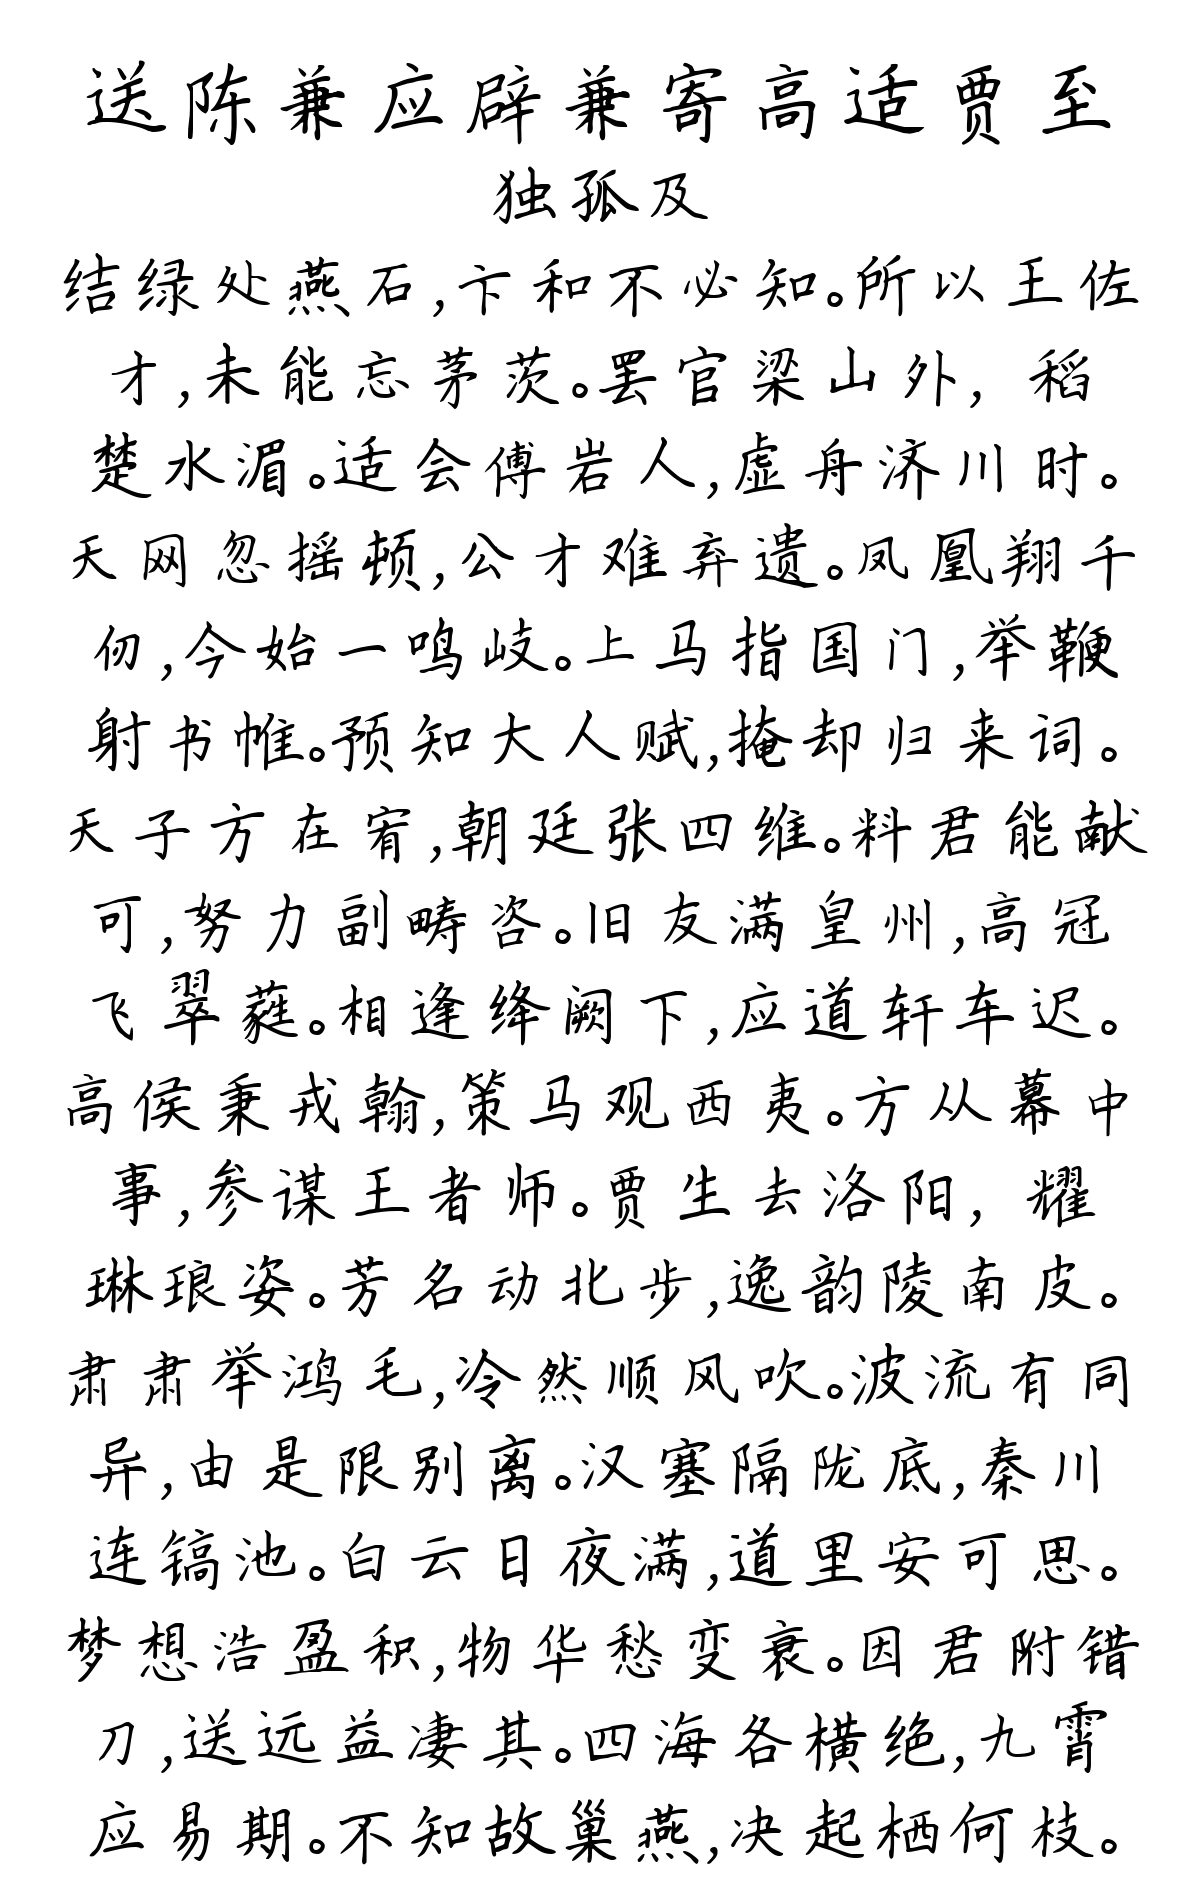 送陈兼应辟兼寄高适贾至
独孤及
结绿处燕石,卞和不必知。所以王佐
才,未能忘茅茨。罢官梁山外, 稻
楚水湄。适会傅岩人,虚舟济川时。
天网忽摇顿,公才难弃遗。凤凰翔千
仞,今始一鸣岐。上马指国门,举鞭
射书帷。预知大人赋,掩却归来词。
天子方在宥,朝廷张四维。料君能献
可,努力副畴咨。旧友满皇州,高冠
飞翠蕤。相逢绛阙下,应道轩车迟。
高侯秉戎翰,策马观西夷。方从幕中
事,参谋王者师。贾生去洛阳, 耀
琳琅姿。芳名动北步,逸韵陵南皮。
肃肃举鸿毛,冷然顺风吹。波流有同
异,由是限别离。汉塞隔陇底,秦川
连镐池。白云日夜满,道里安可思。
梦想浩盈积,物华愁变衰。因君附错
刀,送远益凄其。四海各横绝,九霄
应易期。不知故巢燕,决起栖何枝。